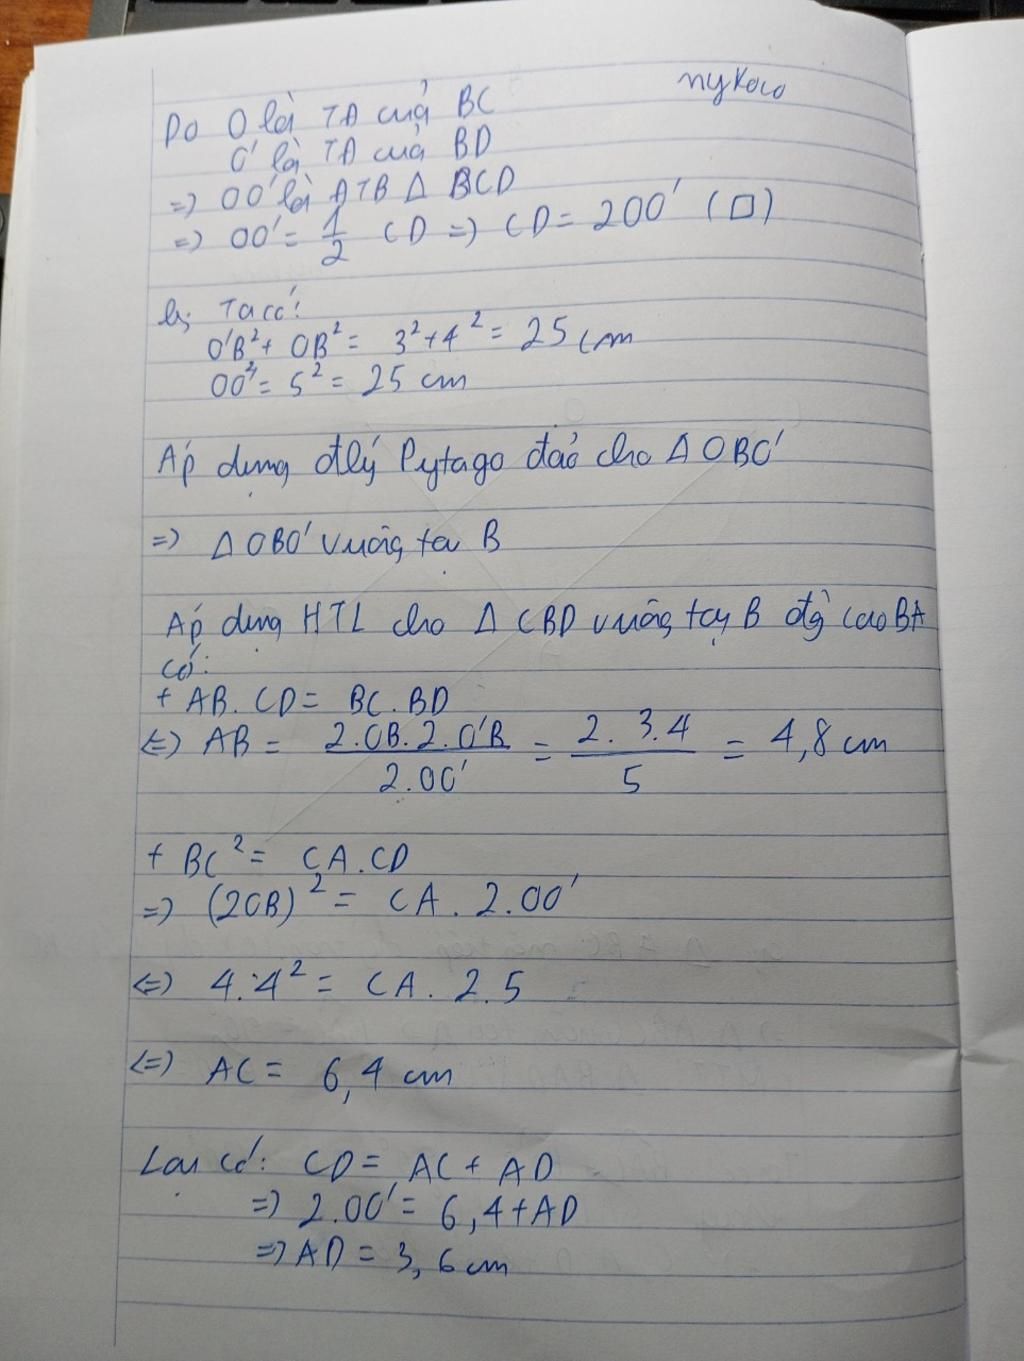 nyKoco
Do O là TĐ của BC
O' là TĐ của BD
=> OO' là ĐTB Δ BCD
=> OO' = 1/2 CD => CD = 2OO' (□)
b; Ta có:
O'B² + OB² = 3² + 4² = 25 cm
OO'² = 5² = 25 cm
Áp dụng đlý Pytago đảo cho Δ OBO'
=> Δ OBO' vuông tại B
Áp dụng HTL cho Δ CBD vuông tại B đg cao BA
có:
+ AB. CD = BC. BD
<=> AB = 2.OB.2.O'B / 2.OO' = 2. 3.4 / 5 = 4,8 cm
+ BC² = CA. CD
=> (2OB)² = CA. 2.OO'
<=> 4.4² = CA. 2.5
<=> AC = 6,4 cm
Lại có: CD = AC + AD
=> 2.OO' = 6,4 + AD
=> AD = 3,6 cm